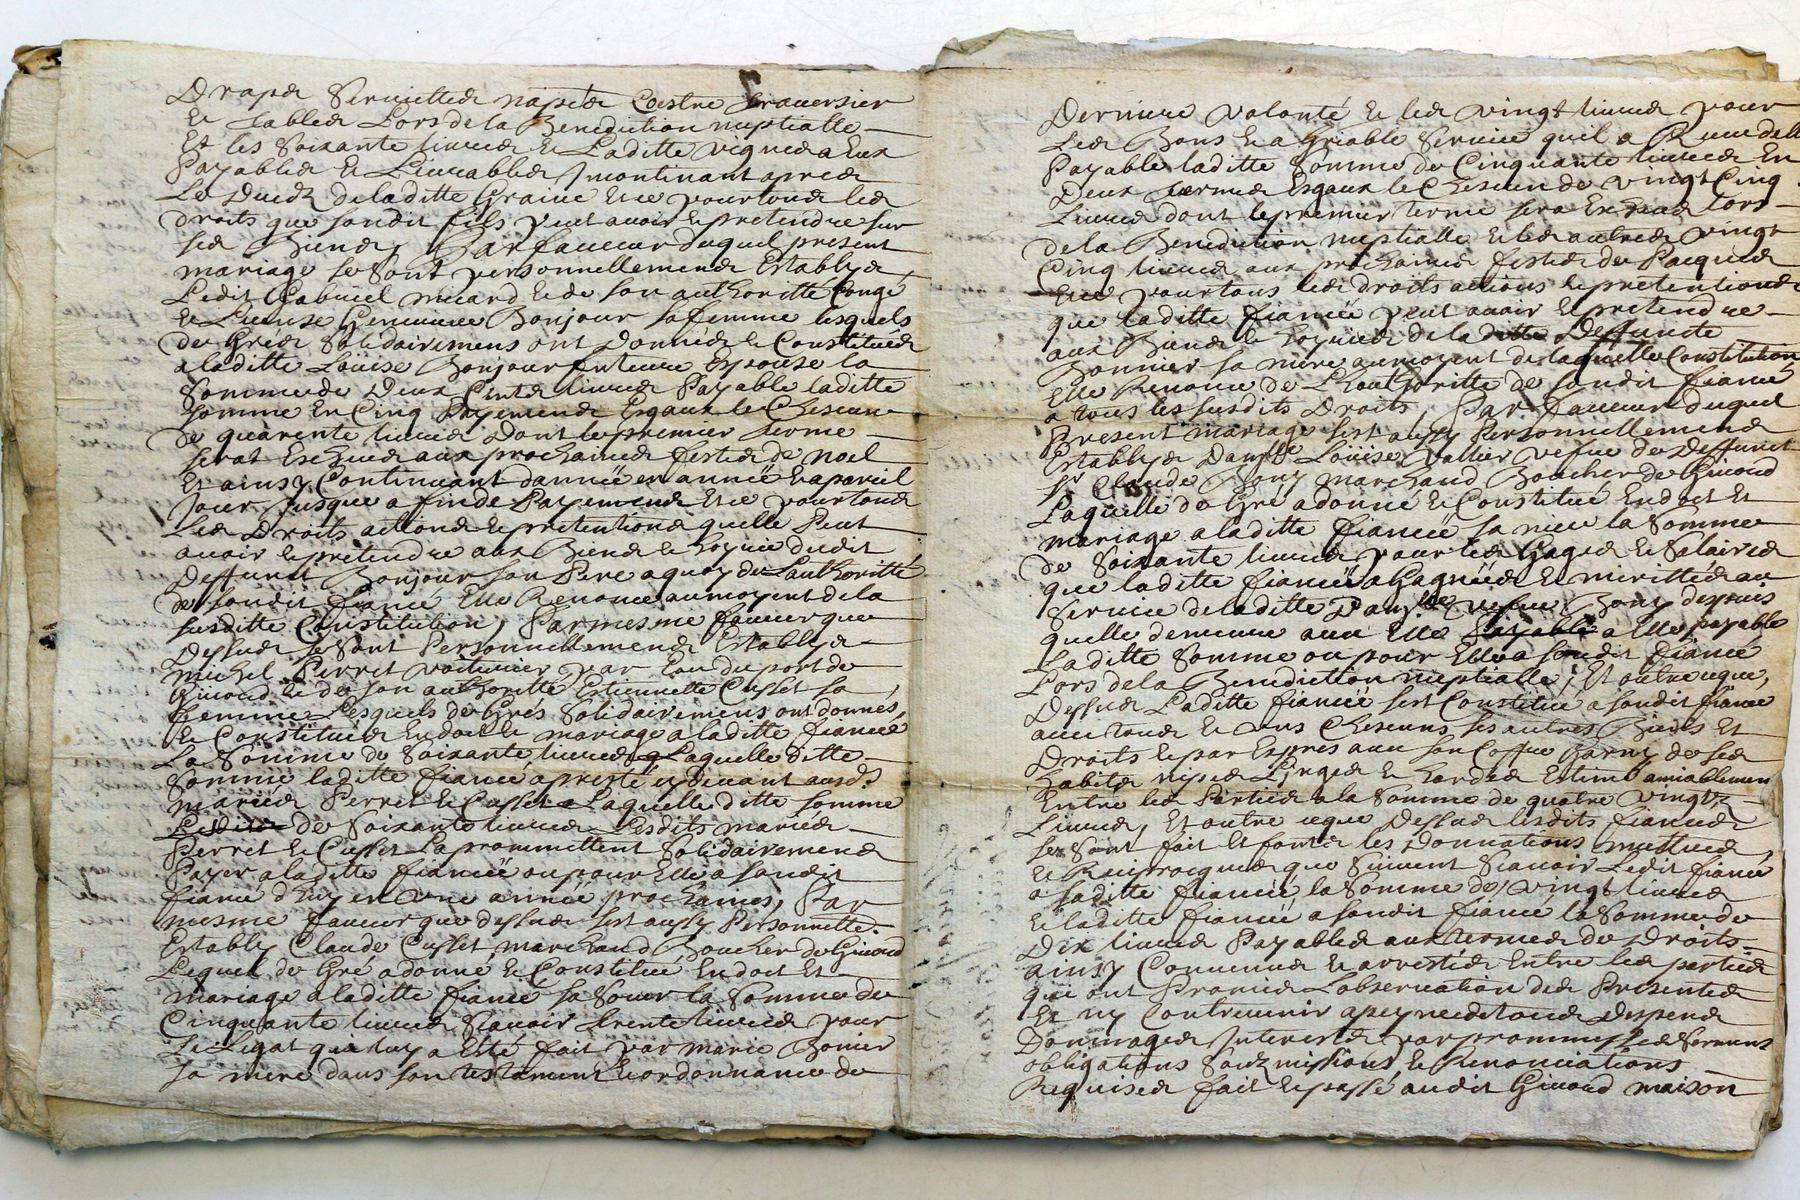 Draps Serviettes napes Coestre traversier
Et tables Lors de la Benediction nuptialle
Et les Soixante livres Et Laditte vignes a Eux
Payables Et Livrables Jmontinant apres
Le Duedz de laditte Graive Et ce pour tous les
droits que sondit fils peut avoir Et pretendre sur
ses Biens, Par faveur duquel present
mariage se Sont personnellemens Establys
Ledit Gabriel micard Et de son authoritté Congé
Et License Genevieve Bonjour sa femme lesquels
de Grés Solidairemens ont Donnés Et Constitués
a laditte Loüise Bonjour future Espouse la
Somme de Deux Cents livres Payable laditte
somme En Cinq Payemens Esgaux le Chescun
de quarente livres Dont le premier terme
serat Escheus aux prochaines festes de noel
Et ainsy Continuant dannéë en annéë Et apareil
Jour Jusque a fin de Payemens Et ce pour tous
Les Droits actions Et pretentions quelle Peut
avoir Et pretendre aux Biens Et hoyrie dudit
Deffunt Bonjour son Pere a quoy de Lauthoritte
de sondit fiancé Elle Renonce au moyent de la
susditte Constitution, Par mesme faveur que
Dessus se Sont Personnellemens Establys
michel Perret voiturier par Eau du port de
Givord Et de son authoritté Estiennette Cusset sa
femme Lesquels de Grés Solidairemens ont donnés
Et Constitués En dot Et mariage a laditte fiancéé
La Somme de Soixante livres Laquelle ditte
Somme laditte fiancéé a presté cy devant ausds.
mariés Perret Et Cusset Laquelle ditte somme
Lesdits de Soixante livres Lesdits mariés
Perret Et Cusset La prommettent Solidairemens
Payer a laditte fiancéë ou pour Elle a sondit
fiancé d'huy en une année prochaines, Par
mesme faveur que dessus sest aussy Personnelle.
Estably Claude Cusset marchand Boucher de Givord
Lequel de Gré a donné Et Constitué En dot Et
mariage a laditte fiancéé sa Soeur la Somme de
Cinquante livres Scavoir trente livres pour
Le Legat qui luy a Esté fait par marie Bonier
sa mere dans son testament Et ordonnance de
Derniere volonté Et les vingt livres pour
Les Bons Et agreable Service quil a Receu delle
Payable laditte Somme de Cinquante livres En
Deux termes Esgaux le Chescun de vingt Cinq
Livres dont le premier terme sera Escheus Lors
de la Benediction nuptialle Et les autres vingt
Cinq livres aux prochaines festes de Pacques
Et ce pour tous les droits actions Et pretentions
que laditte fiancéë peut avoir Et pretendre
aux Biens Et hoyries de laditte Deffuncte
Bonnier sa mere au moyent de laquelle Constitution
Elle Renonce de Lhauthoritte de sondit fiancé
a tous les susdits Droits, Par faveur duquel
Present mariage sest aussy Personnellemens
Establys Damlle Loüise Vallier vefue de Deffunct
Sr Claude Bony marchand Boucher de Givord
Laquelle de Gré a donné Et Constitué En dot Et
mariage a laditte fiancéë sa niece la Somme
de Soixante livres pour les Gages Et Salaires
que laditte fiancéë a Gagnéés Et merittés au
Service de laditte Damlle vefue Bony depuis
quelle demeure avec Elle Payable a Elle payable
Laditte Somme ou pour Elle a sondit fiancé
Lors de la Benediction nuptialle, Et outre ce que
Dessus Laditte fiancéé sest Constitué a sondit fiancé
avec tous Et uns Chescuns ses autres Biens Et
Droits Et par Expres avec son Coffre Garny de ses
habits nipes Linges Et hardes Estimé amiablemen
Entre les Parties a la Somme de quatre vingts
Livres, Et outre ce que Dessus lesdits fiancés
se Sont fait Et font les Donnations mutuës
Et Reciprocques que Suivent Scavoir Ledit fiancé
a saditte fiancéé la Somme de vingt livres
Et laditte fiancéé a sondit fiancé la Somme de
Dix livres Payables aux termes de Droits
ainsy Convenus Et arrestés Entre les parties
qui ont Promis Lobservation des Presentes
Et ny Contrevenir a peyne de tous Despens
Dommages Interests par prommesses Serment
obligations Soubzmissions Et Renonciations
Requises fait Et passé audit Givord maison